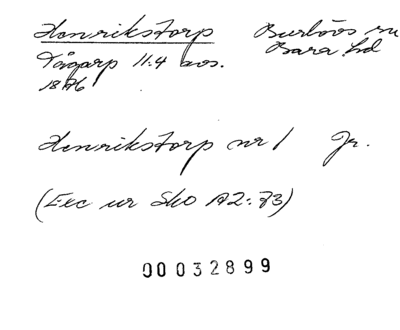 Henrikstorp Burlövs sn
Tågarp 11:4 avs. Bara hd
1876
Henrikstorp nr 1 Jr.
(Exc ur Sko A2:73)
00032899